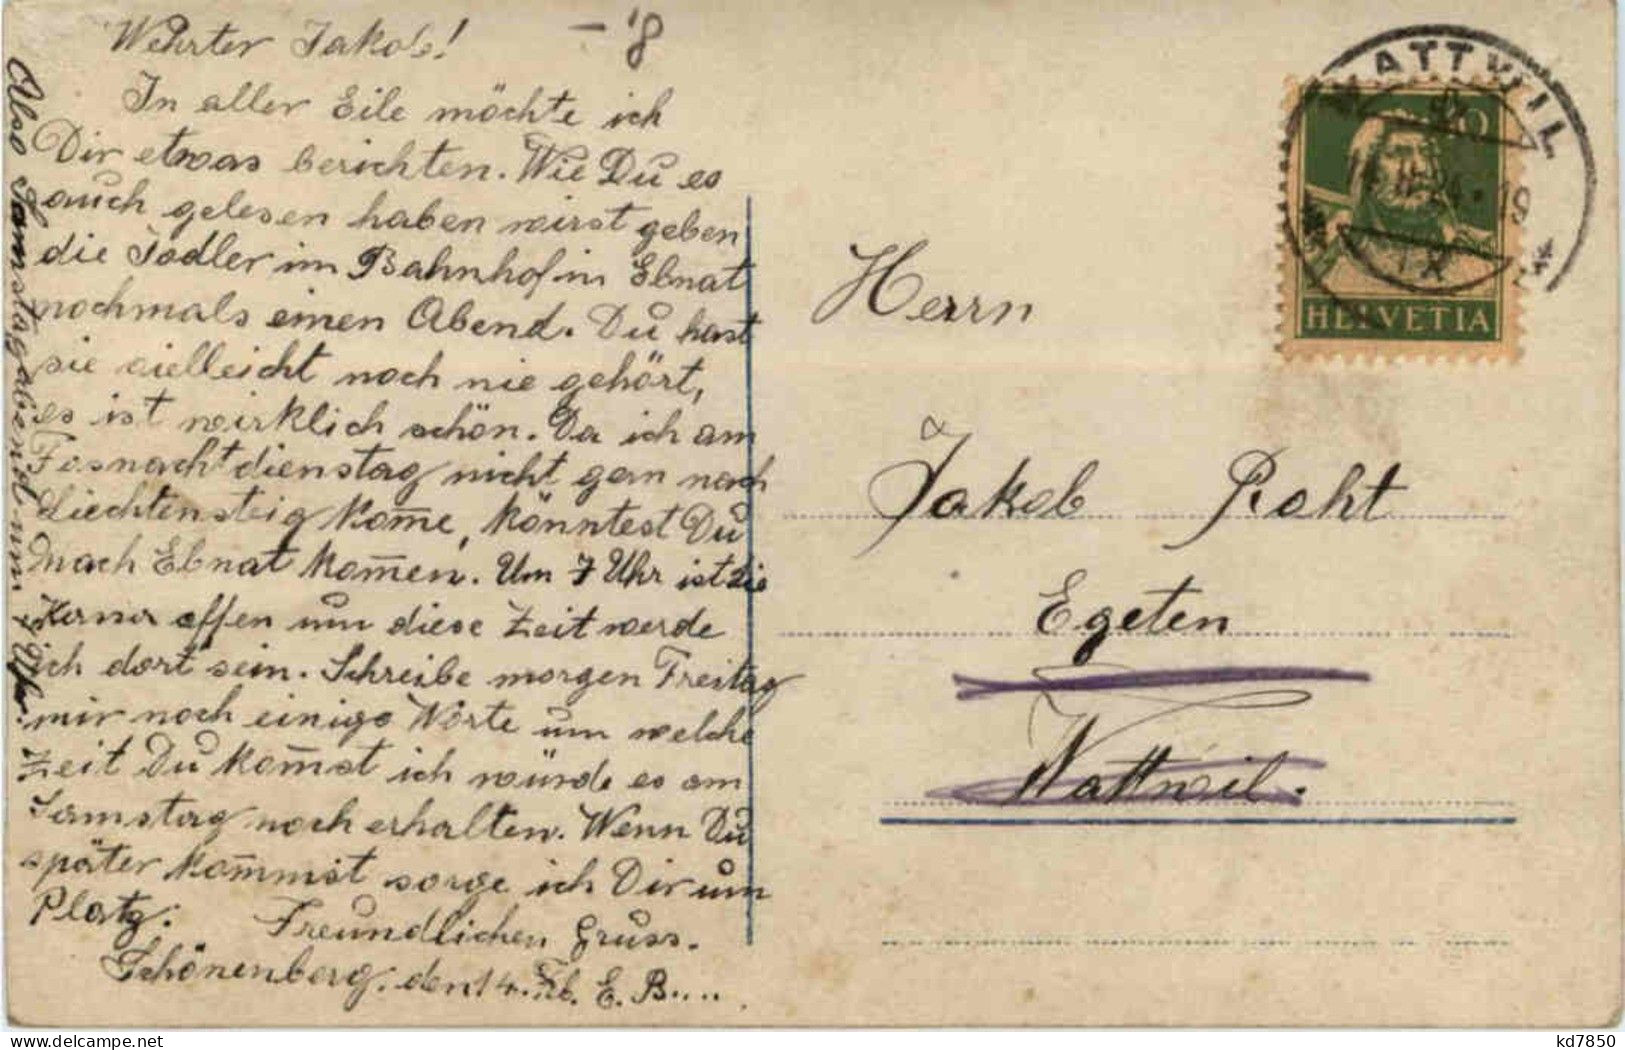 - 8
Wehrter Jakob!
In aller Eile möchte ich
Dir etwas berichten. Wie Du es
auch gelesen haben wirst geben
die Jodler im Bahnhof in Ebnat
nochmals einen Abend. Du hast
sie vielleicht noch nie gehört,
es ist wirklich schön. Da ich am
Fasnachtdienstag nicht gern nach
Liechtensteig kom̄e, könntest Du
nach Ebnat kom̄en. Um 7 Uhr ist die
offen um diese Zeit werde
ich dort sein. Schreibe morgen Freitag
mir noch einige Worte um welche
Zeit Du kom̄st ich würde es am
Samstag noch erhalten. Wenn Du
später kom̄mst sorge ich Dir um
Platz. Freundlichen Gruss.
Schönenberg, den 14. Feb. E. B....
Also Samstag abend um 7 Uhr.
WATTWIL
19
IX
10
HELVETIA
Herrn
Jakob Roht
Egeten
Wattwil.
kd7850